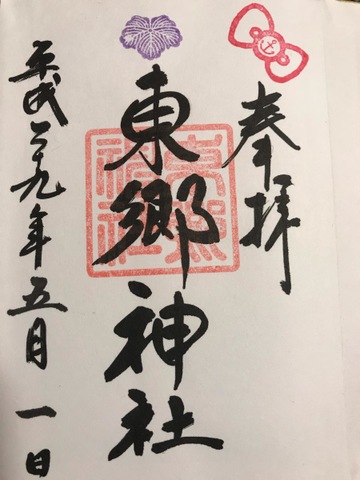 奉拝
東郷神社
平成二九年五月一日